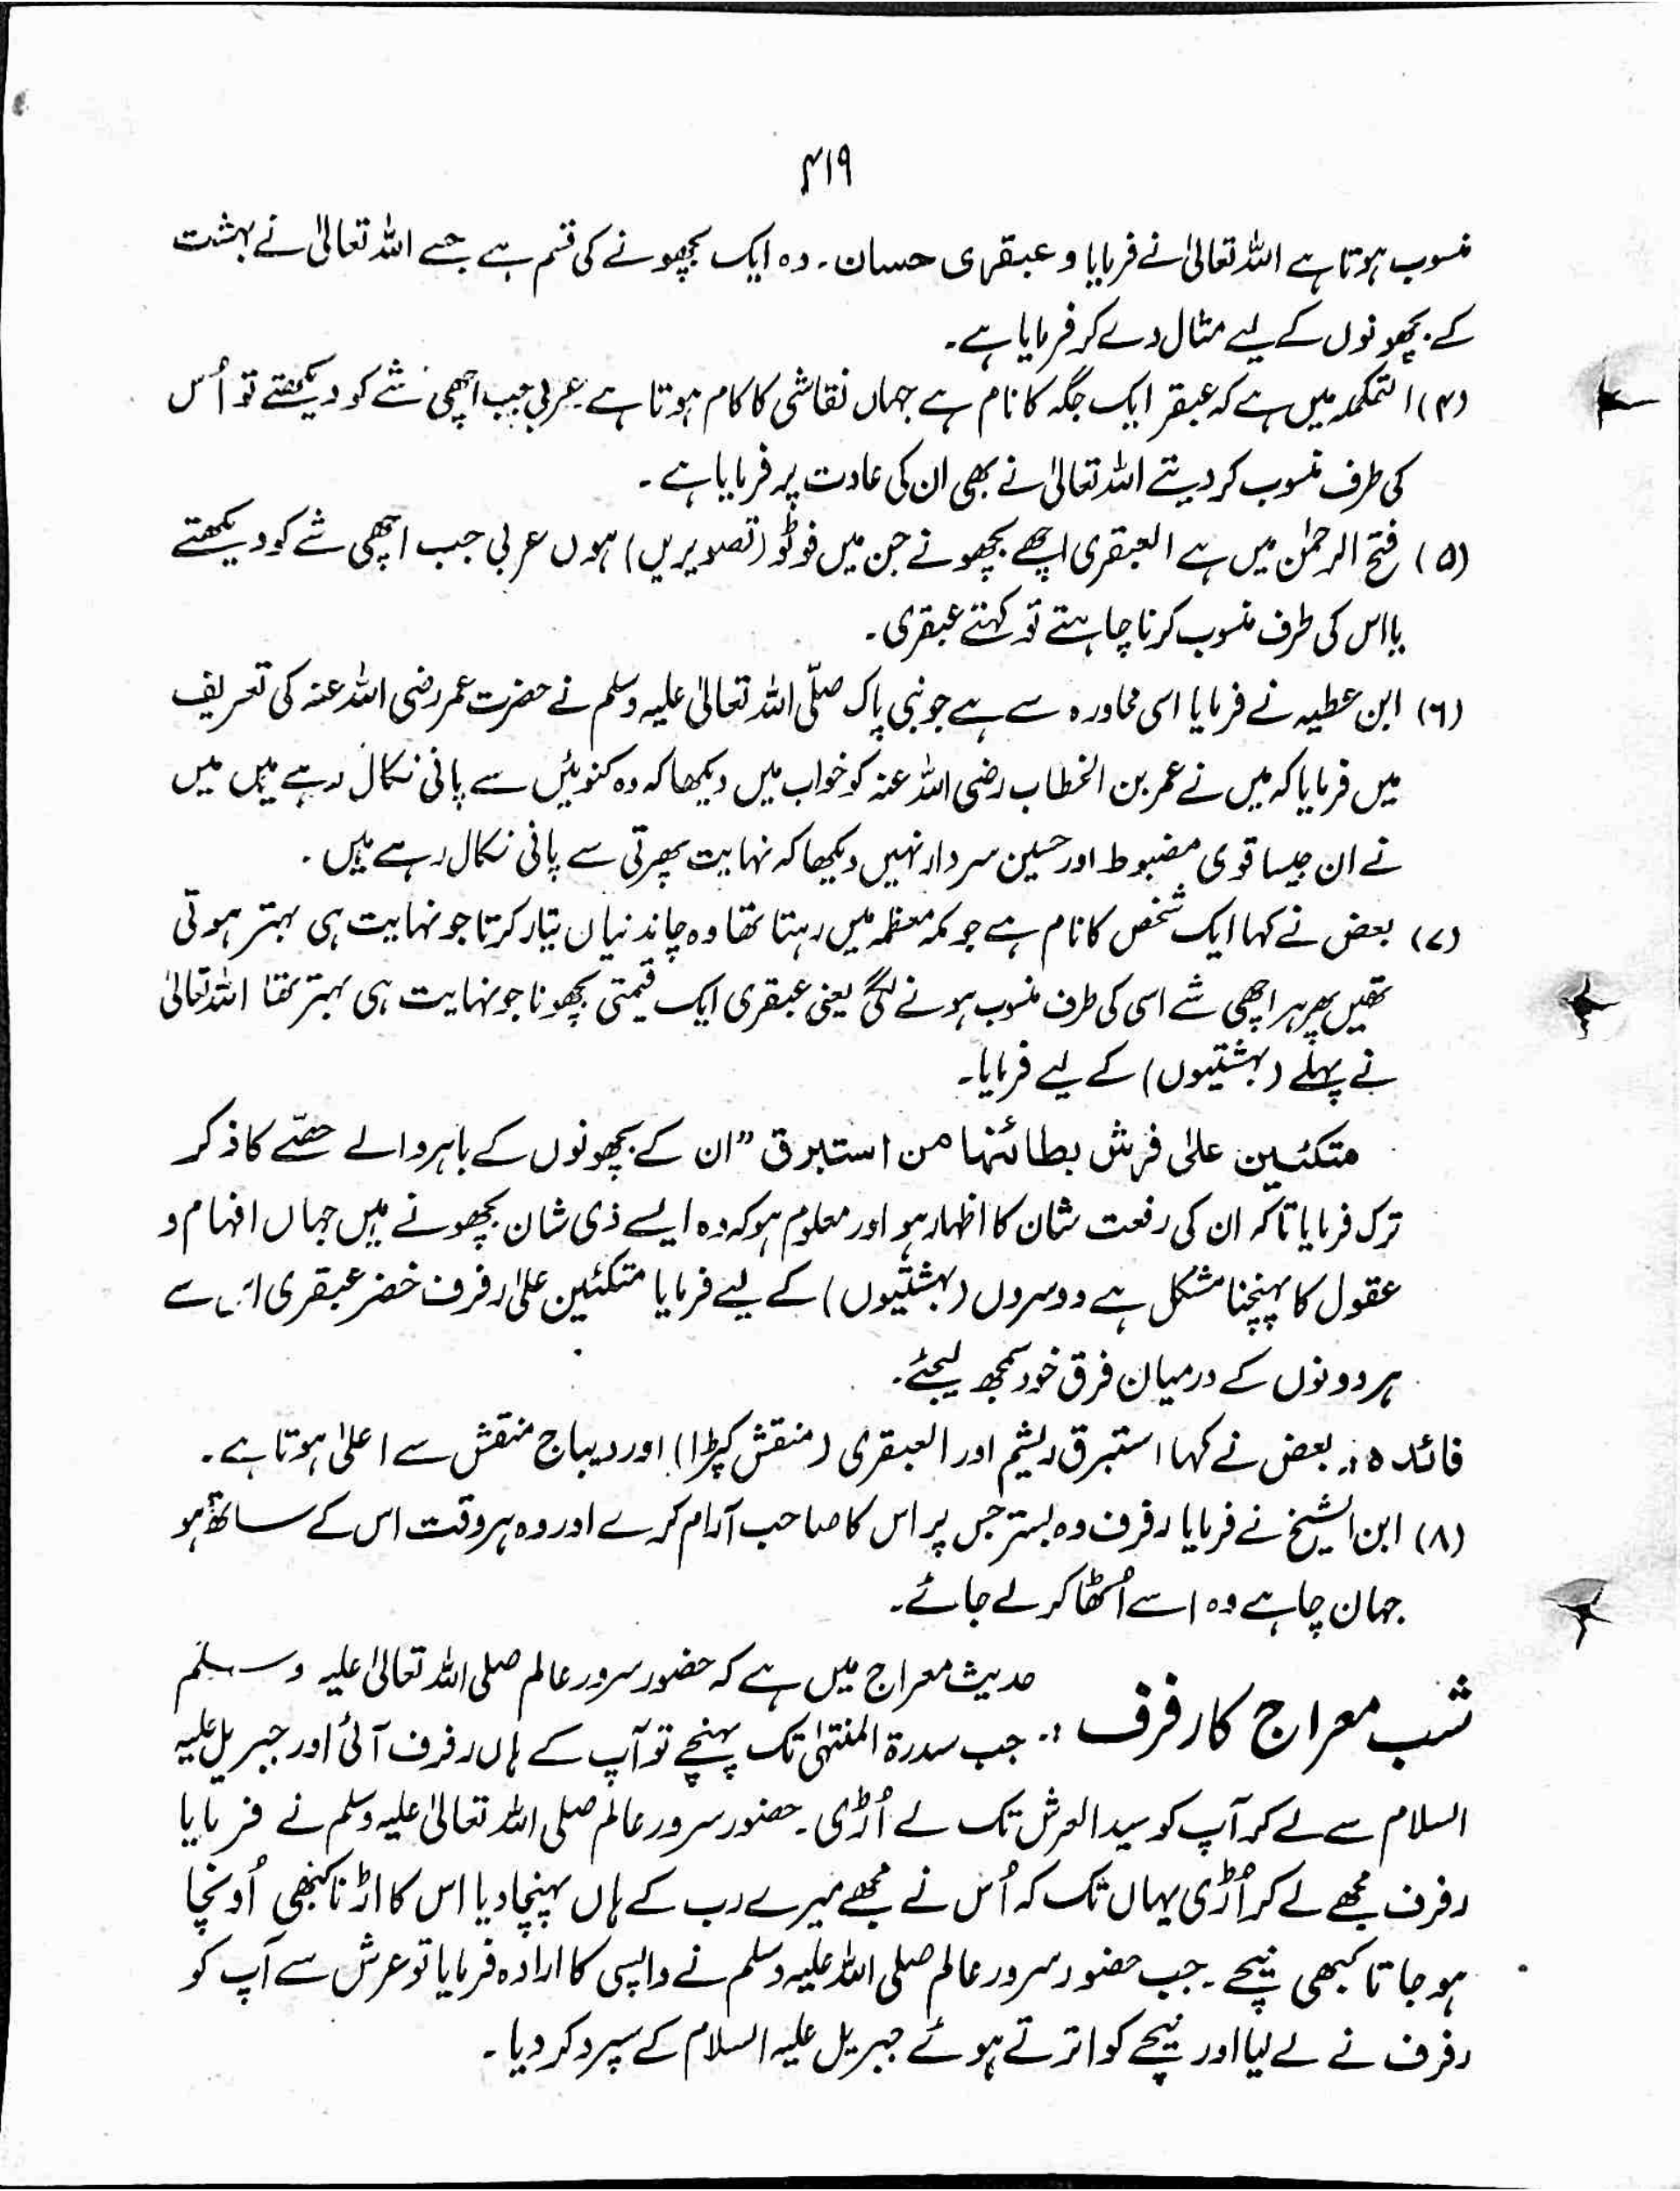 ۴۱۹
منسوب ہوتا ہے اللہ تعالیٰ نے فرمایا و عبقری حسان۔ وہ ایک بچھونے کی قسم ہے جسے اللہ تعالیٰ نے بہشت
کے بچھونوں کے لیے مثال دے کر فرمایا ہے۔
(۴) التکملہ میں ہے کہ عبقر ایک جگہ کا نام ہے جہاں نقاشی کا کام ہوتا ہے۔ عربی جب اچھی شے کو دیکھتے تو اُس
کی طرف منسوب کر دیتے اللہ تعالیٰ نے بھی ان کی عادت پر فرمایا ہے۔
(۵) فتح الرحمٰن میں ہے العبقری اچھے بچھونے جن میں فوٹو (تصویریں) ہوں عربی جب اچھی شے کو دیکھتے
یا اس کی طرف منسوب کرنا چاہتے تو کہتے عبقری۔
(۶) ابن عطیہ نے فرمایا اسی محاورہ سے ہے جو نبی پاک صلّی اللہ تعالیٰ علیہ وسلم نے حضرت عمر رضی اللہ عنہ کی تعریف
میں فرمایا کہ میں نے عمر بن الخطاب رضی اللہ عنہ کو خواب میں دیکھا کہ وہ کنوئیں سے پانی نکال رہے ہیں میں
نے ان جیسا قوی مضبوط اور حسین سردار نہیں دیکھا کہ نہایت پھرتی سے پانی نکال رہے ہیں۔
(۷) بعض نے کہا ایک شخص کا نام ہے جو مکہ معظمہ میں رہتا تھا وہ چاندنیاں تیار کرتا جو نہایت ہی بہتر ہوتی
تھیں پھر ہر اچھی شے اسی کی طرف منسوب ہونے لگی یعنی عبقری ایک قیمتی بچھونا جو نہایت ہی بہتر تھا اللہ تعالیٰ
نے پہلے (بہشتیوں) کے لیے فرمایا۔
متکئین علیٰ فرش بطائنہا من استبرق ”ان کے بچھونوں کے باہر والے حصّے کا ذکر
ترک فرمایا تاکہ ان کی رفعت شان کا اظہار ہو اور معلوم ہو کہ وہ ایسے ذی شان بچھونے ہیں جہاں افہام و
عقول کا پہنچنا مشکل ہے دوسروں (بہشتیوں) کے لیے فرمایا متکئین علیٰ رفرف خضر عبقری اس سے
ہر دونوں کے درمیان فرق خود سمجھ لیجئے۔
فائدہ :۔ بعض نے کہا استبرق ریشم اور العبقری (منقش کپڑا) اور دیباج منقش سے اعلیٰ ہوتا ہے۔
(۸) ابن الشیخ نے فرمایا رفرف وہ بستر جس پر اس کا صاحب آرام کرے اور وہ ہر وقت اس کے ساتھ ہو
جہان چاہے وہ اسے اُٹھا کر لے جائے۔
شب معراج کا رفرف :۔ حدیث معراج میں ہے کہ حضور سرور عالم صلی اللہ تعالیٰ علیہ وسلم
جب سدرۃ المنتہیٰ تک پہنچے تو آپ کے ہاں رفرف آئی اور جبریل علیہ
السلام سے لے کر آپ کو سید العرش تک لے اُڑی۔ حضور سرور عالم صلی اللہ تعالیٰ علیہ وسلم نے فرمایا
رفرف مجھے لے کر اُڑی یہاں تک کہ اُس نے مجھے میرے رب کے ہاں پہنچا دیا اس کا اڑنا کبھی اُونچا
ہو جاتا کبھی نیچے۔ جب حضور سرور عالم صلی اللہ علیہ وسلم نے واپسی کا ارادہ فرمایا تو عرش سے آپ کو
رفرف نے لے لیا اور نیچے کو اترتے ہوئے جبریل علیہ السلام کے سپرد کر دیا۔